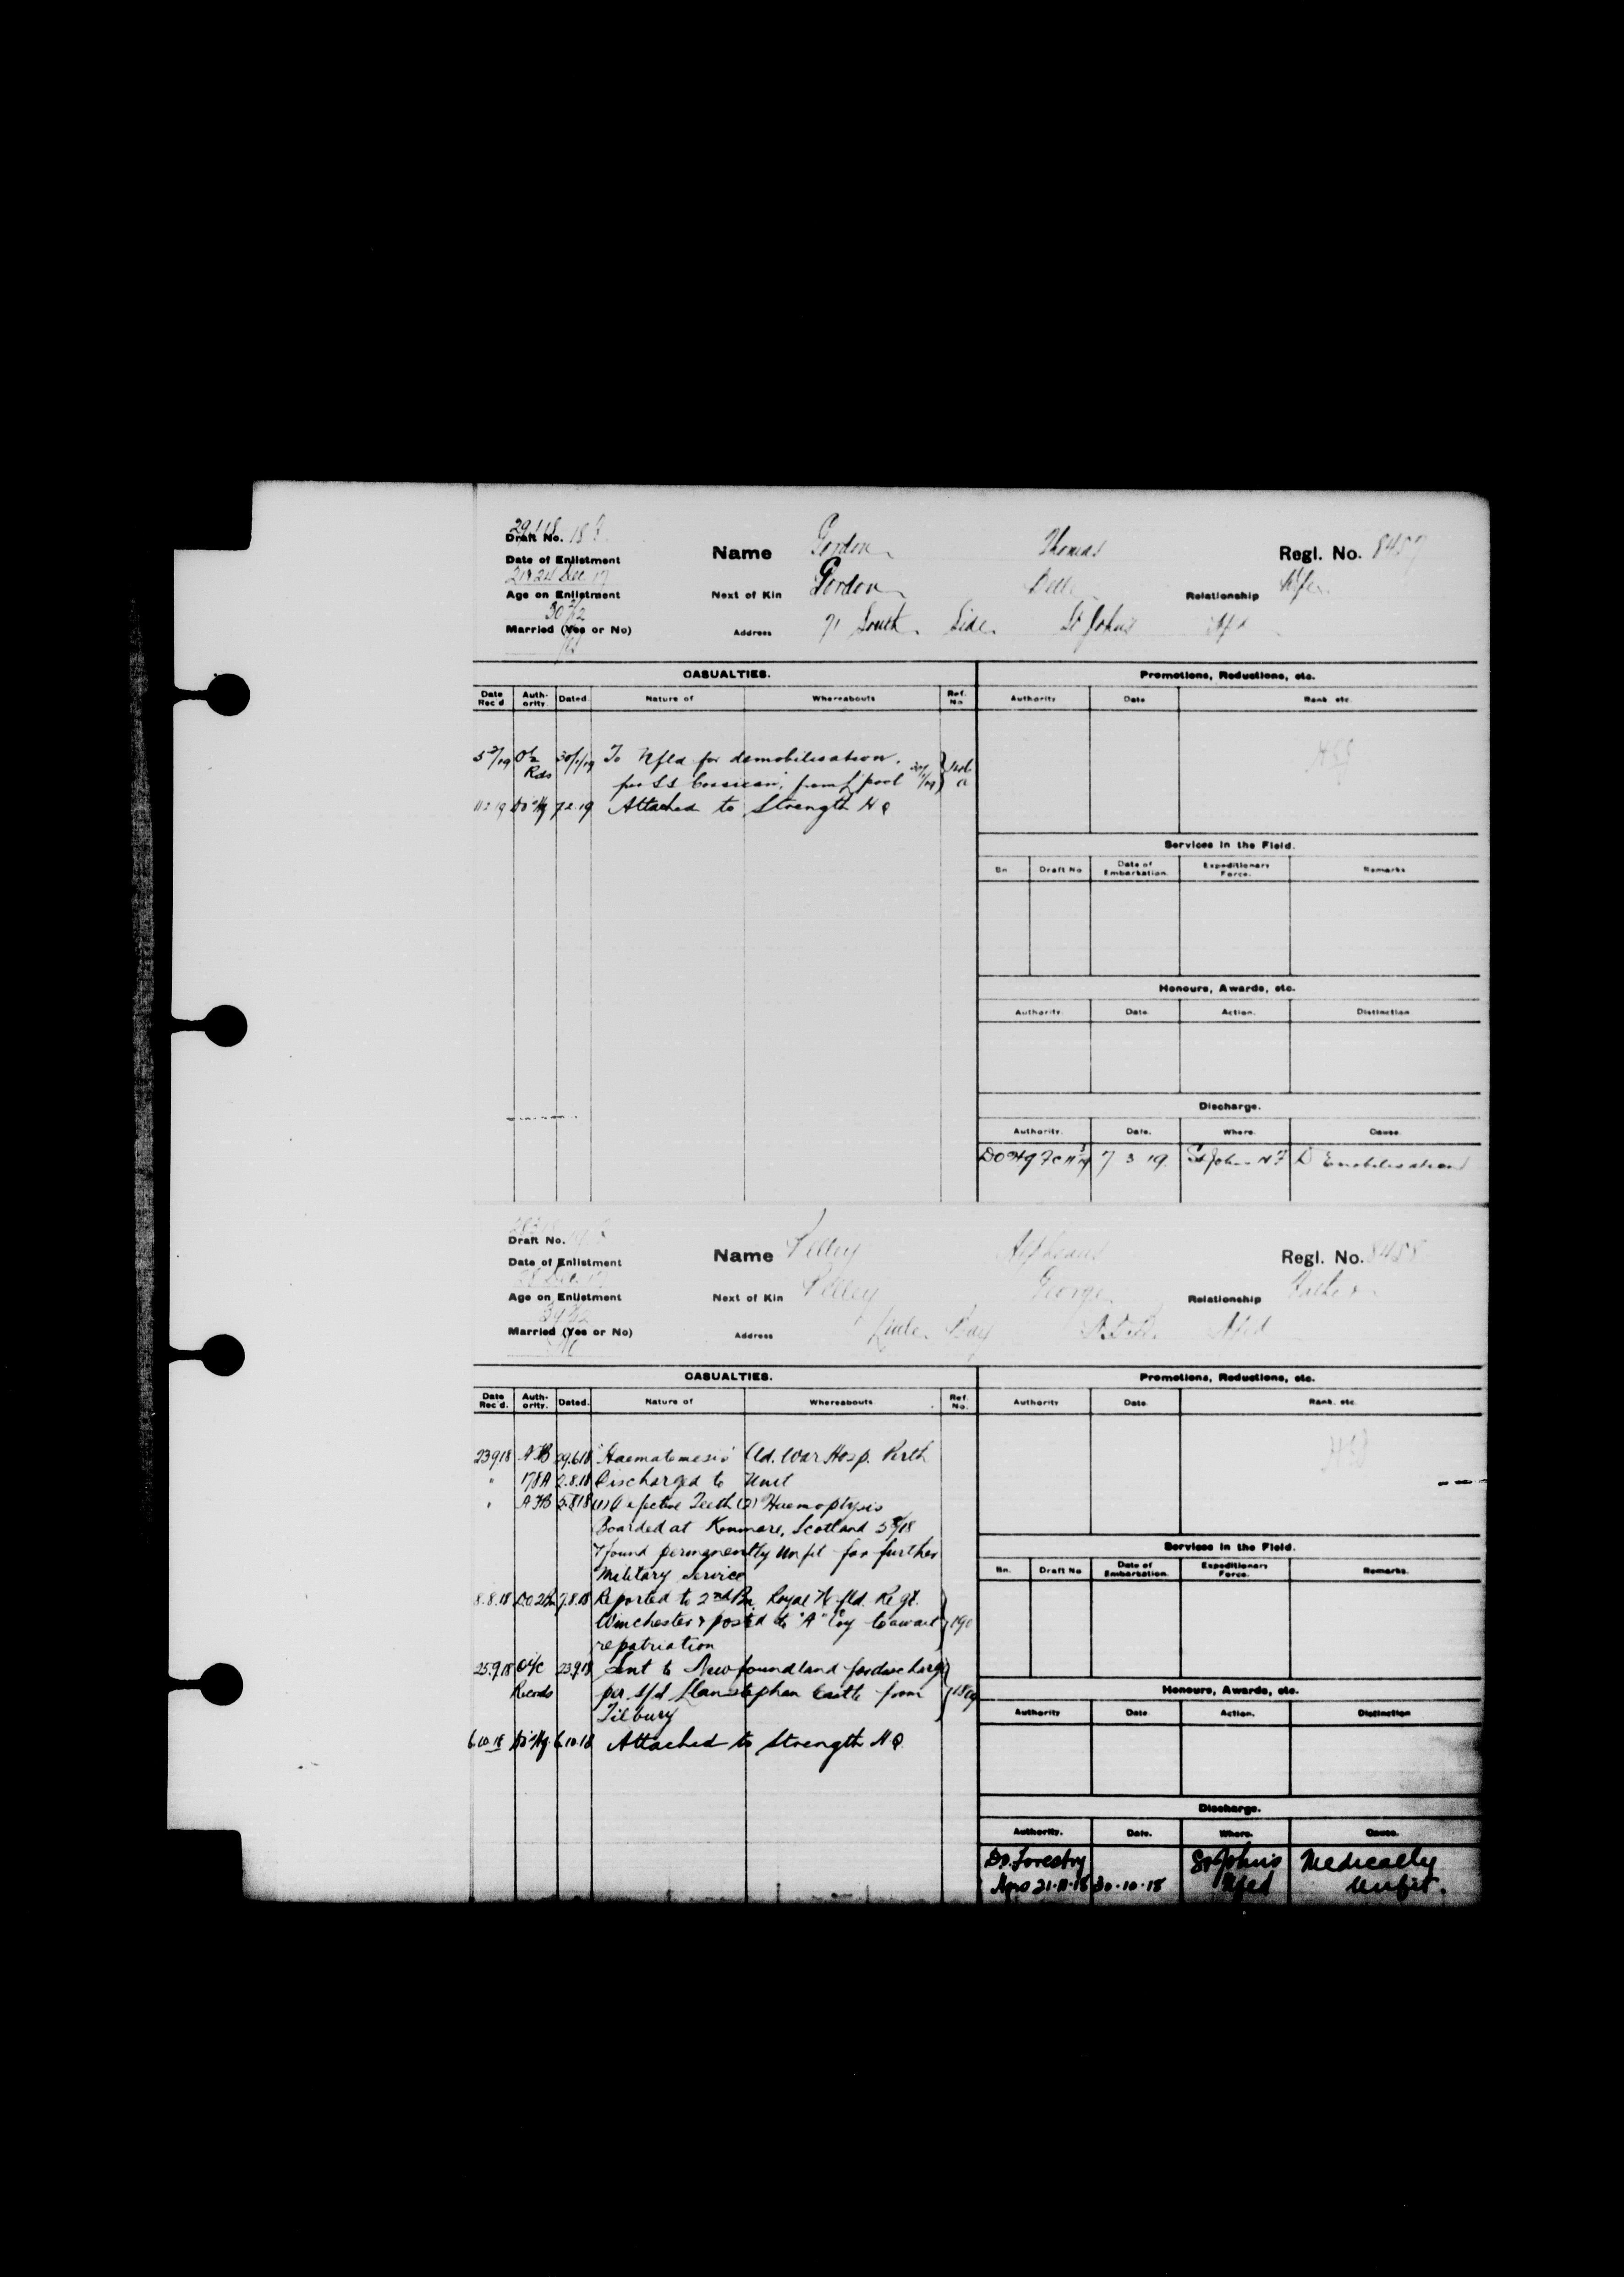 29.1.18
Draft No. 18
Date of Enlistment
Name Gordon Thomas Regl. No. 8457
24 Dec. 17
Age on Enlistment
Next of Kin Gordon Belle Relationship Wife
30
Married (Yes or No)
Address 71 South Side St Johns Nfld
Yes
CASUALTIES. Promotions, Reductions, etc.
Date Rec'd Authority. Dated. Nature of Whereabouts Ref. No Authority Date Rank etc.
To Nfld for demobilisation,
per SS Corsican, from L'pool
Attached to Strength HQ
Services in the Field.
Bn Draft No Date of Embarkation. Expeditionary Force. Remarks
Honours, Awards, etc.
Authority. Date. Action. Distinction
Discharge.
Authority. Date. Where. Cause.
7 3 19. St Johns NF Demobilisation
Draft No.
Date of Enlistment
Name Pelley Alpheaus Regl. No. 8458
28 Dec. 17
Age on Enlistment
Next of Kin Pelley George Relationship Father
Married (Yes or No)
Address Little Bay N.D.B. Nfld
No
CASUALTIES. Promotions, Reductions, etc.
Date Rec'd. Authority. Dated. Nature of Whereabouts Ref. No. Authority Date Rank. etc.
23918 AFB 29.6.18 "Haematemesis" War Hosp. Perth
" 178A 2.8.18 Discharged to Unit
" AFB 5.8.18 (1) Defective Teeth (2) Haemoptysis
Boarded at Kenmore, Scotland 5/8/18
& found permanently Unfit for further
Military Service
8.8.18 7.8.18 Reported to 2nd Bn. Royal Nfld. Regt.
Winchester & posted to "A" Coy to await
repatriation
25.9.18 O i/c 23.9.18 Sent to Newfoundland for discharge
Records per s/s Llanstephan Castle from
Tilbury
6.10.18 6.10.18 Attached to Strength HQ.
Services in the Field.
Bn. Draft No Date of Embarkation. Expeditionary Force. Remarks.
Honours, Awards, etc.
Authority Date Action. Distinction
Discharge.
Authority. Date. Where. Cause.
DO. Forestry St John's Medically
21.11.18 30.10.18 Nfld Unfit.